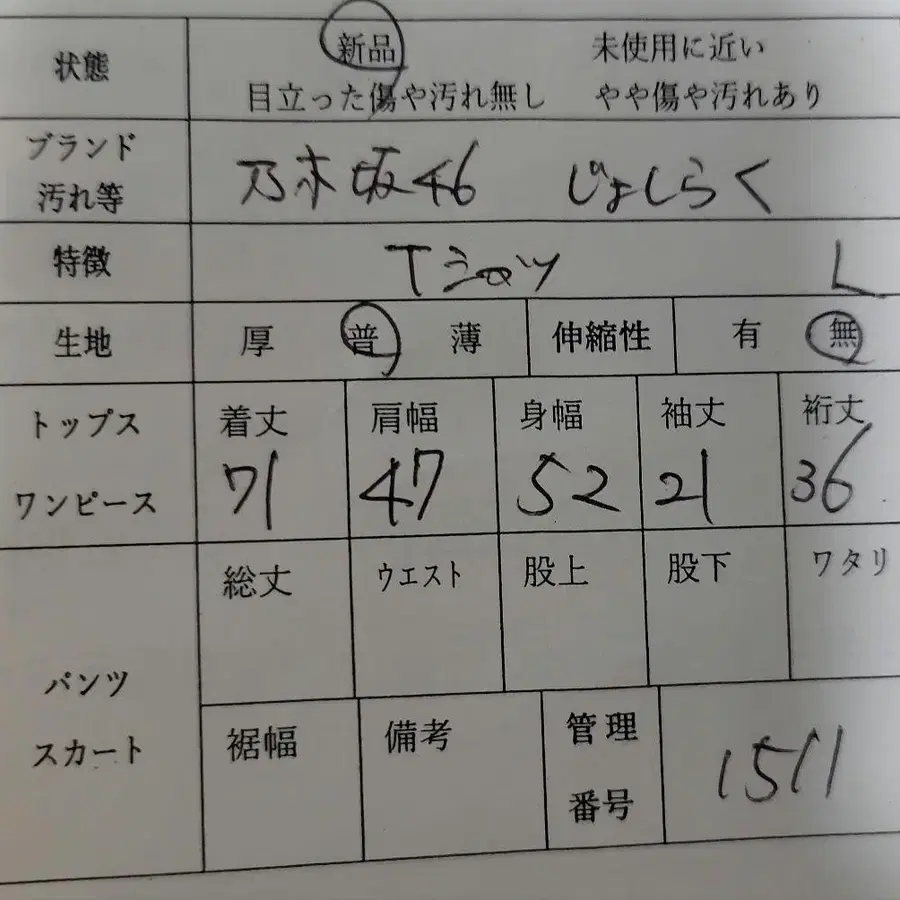 状態 新品 未使用に近い
目立った傷や汚れ無し やや傷や汚れあり
ブランド
汚れ等 乃木坂46 じょしらく
特徴 Tシャツ L
生地 厚 普 薄 伸縮性 有 無
トップス 着丈 肩幅 身幅 袖丈 裄丈
ワンピース 71 47 52 21 36
総丈 ウエスト 股上 股下 ワタリ
パンツ
スカート 裾幅 備考 管理
番号 1511